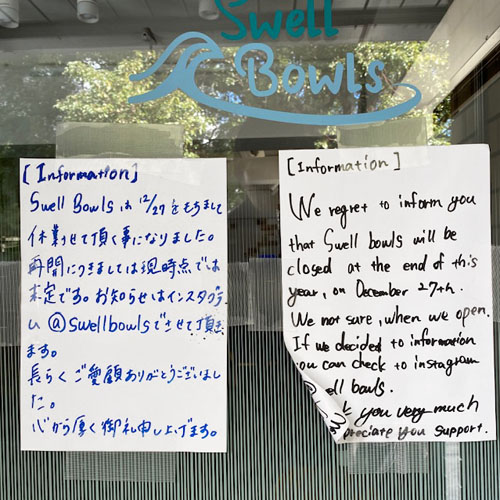 Swell
Bowls
[Information]
Swell Bowlsは12/27をもちまして
休業させて頂く事になりました。
再開につきましては現時点では
未定です。お知らせはインスタグラ
ム@swellbowlsでさせて頂き
ます。
長らくご愛顧ありがとうございまし
た。
心から厚く御礼申し上げます。
[Information]
We regret to inform you
that Swell bowls will be
closed at the end of this
year, on December 27th.
We not sure, when we open.
If we decided to information
you can check to instagram
ell bowls.
you very much
preciate you support.